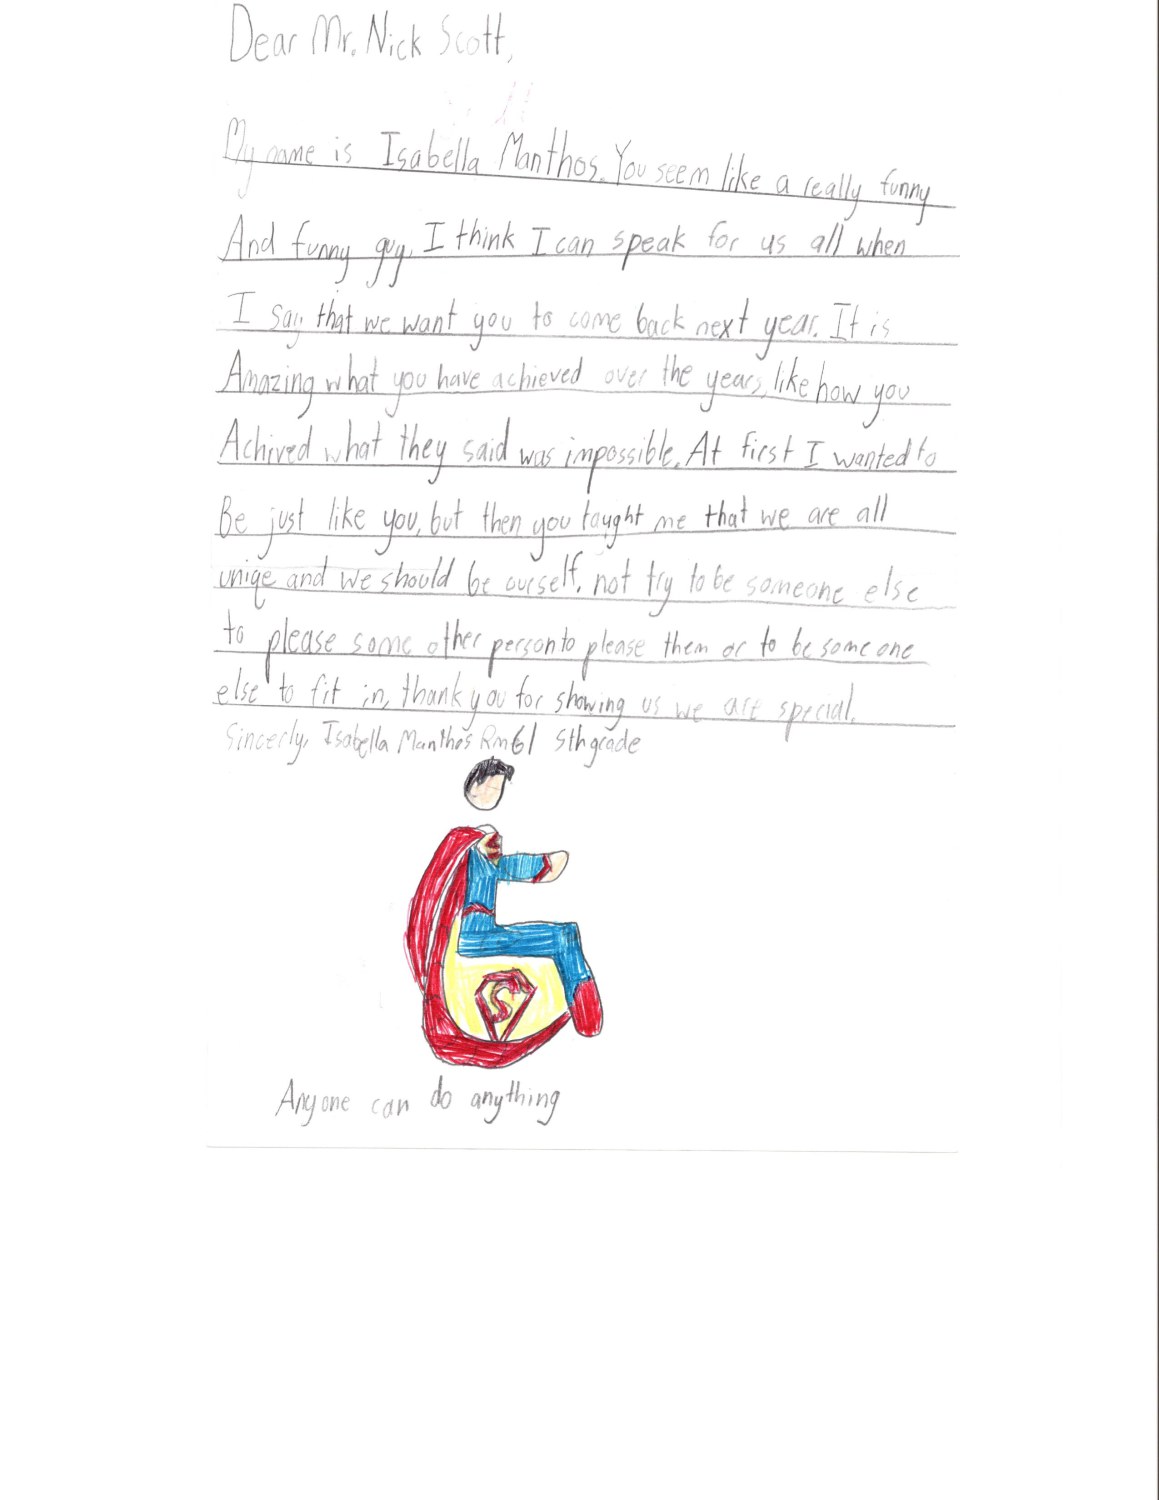 Dear Mr. Nick Scott,
My name is Isabella Manthos. You seem like a really funny
And funny guy. I think I can speak for us all when
I say that we want you to come back next year. It is
Amazing what you have achieved over the years, like how you
Achived what they said was impossible. At first I wanted to
Be just like you, but then you taught me that we are all
uniqe and we should be ourself, not try to be someone else
to please some other person to please them or to be someone
else to fit in, thank you for showing us we are special.
Sincerly, Isabella Manthos Rm61 5th grade
S
Anyone can do anything